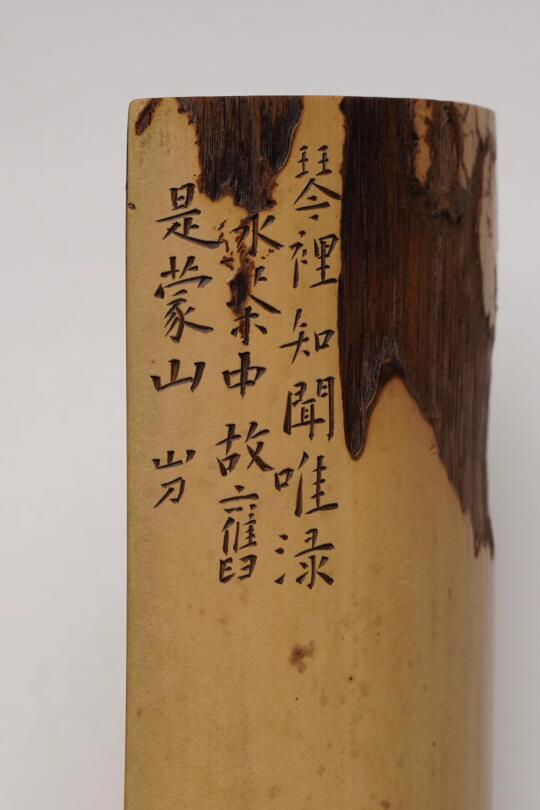 琴裡知聞唯渌
水茶中故舊
是蒙山